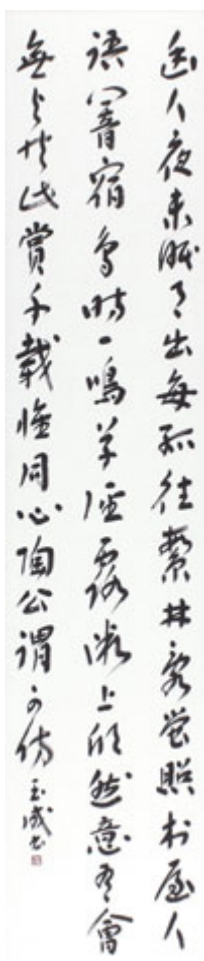 幽人夜未眠月出每孤往繁林亂螢照村屋人
語響宿鳥時一鳴草徑露漸上欣然意有會
無與共此賞千載懷同心陶公謂可仿 玉成书